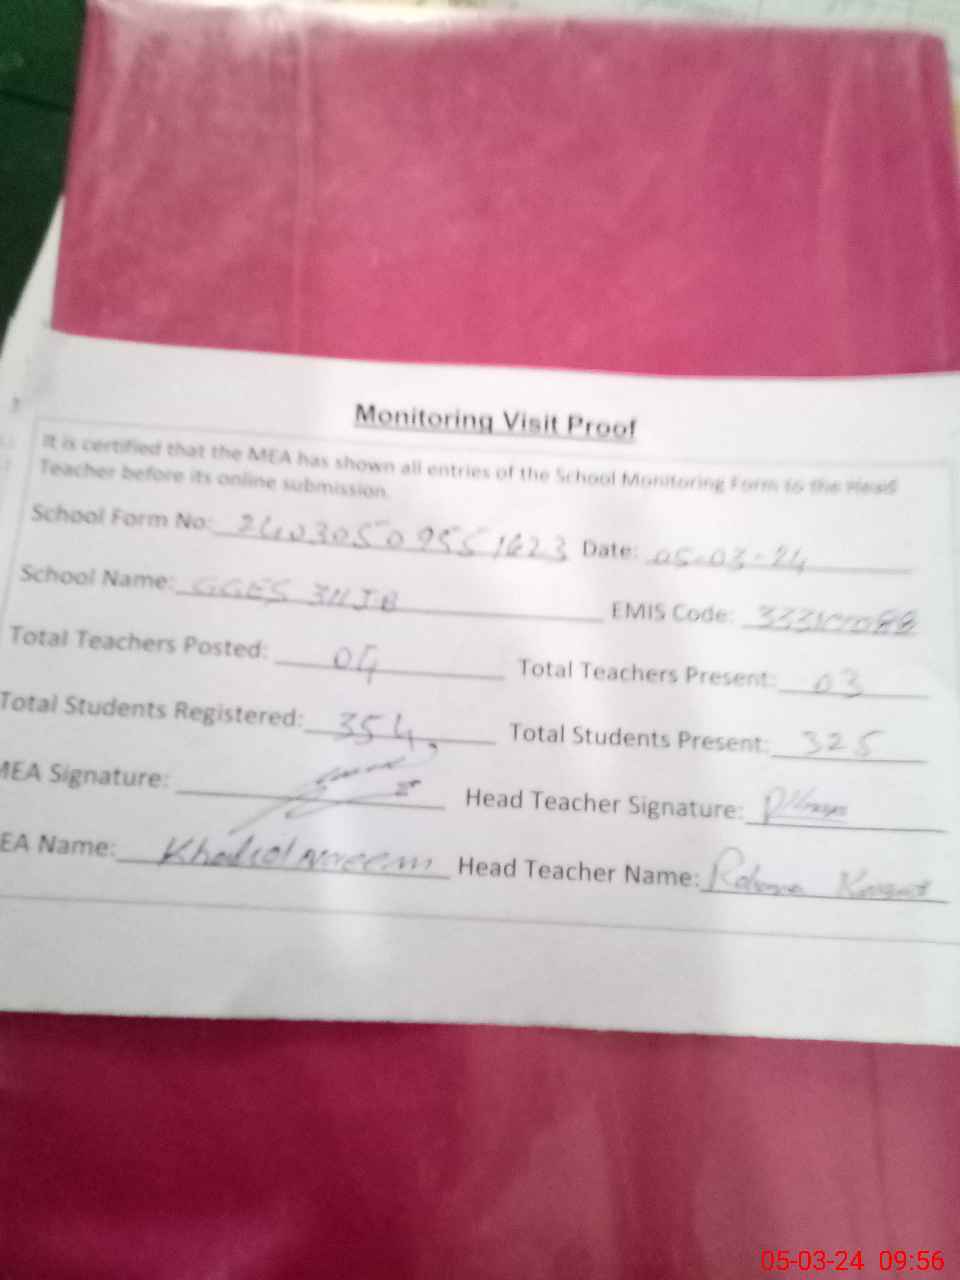 Monitoring Visit Proof
It is certified that the MEA has shown all entries of the School Monitoring Form to the Head
Teacher before its online submission.
School Form No: 24030509551623 Date: 05-03-24
School Name: GGES 311 JB EMIS Code:
Total Teachers Posted: 04 Total Teachers Present: 03
Total Students Registered: 354 Total Students Present: 325
MEA Signature: Head Teacher Signature:
EA Name: Khalid Naeem Head Teacher Name:
05-03-24 09:56